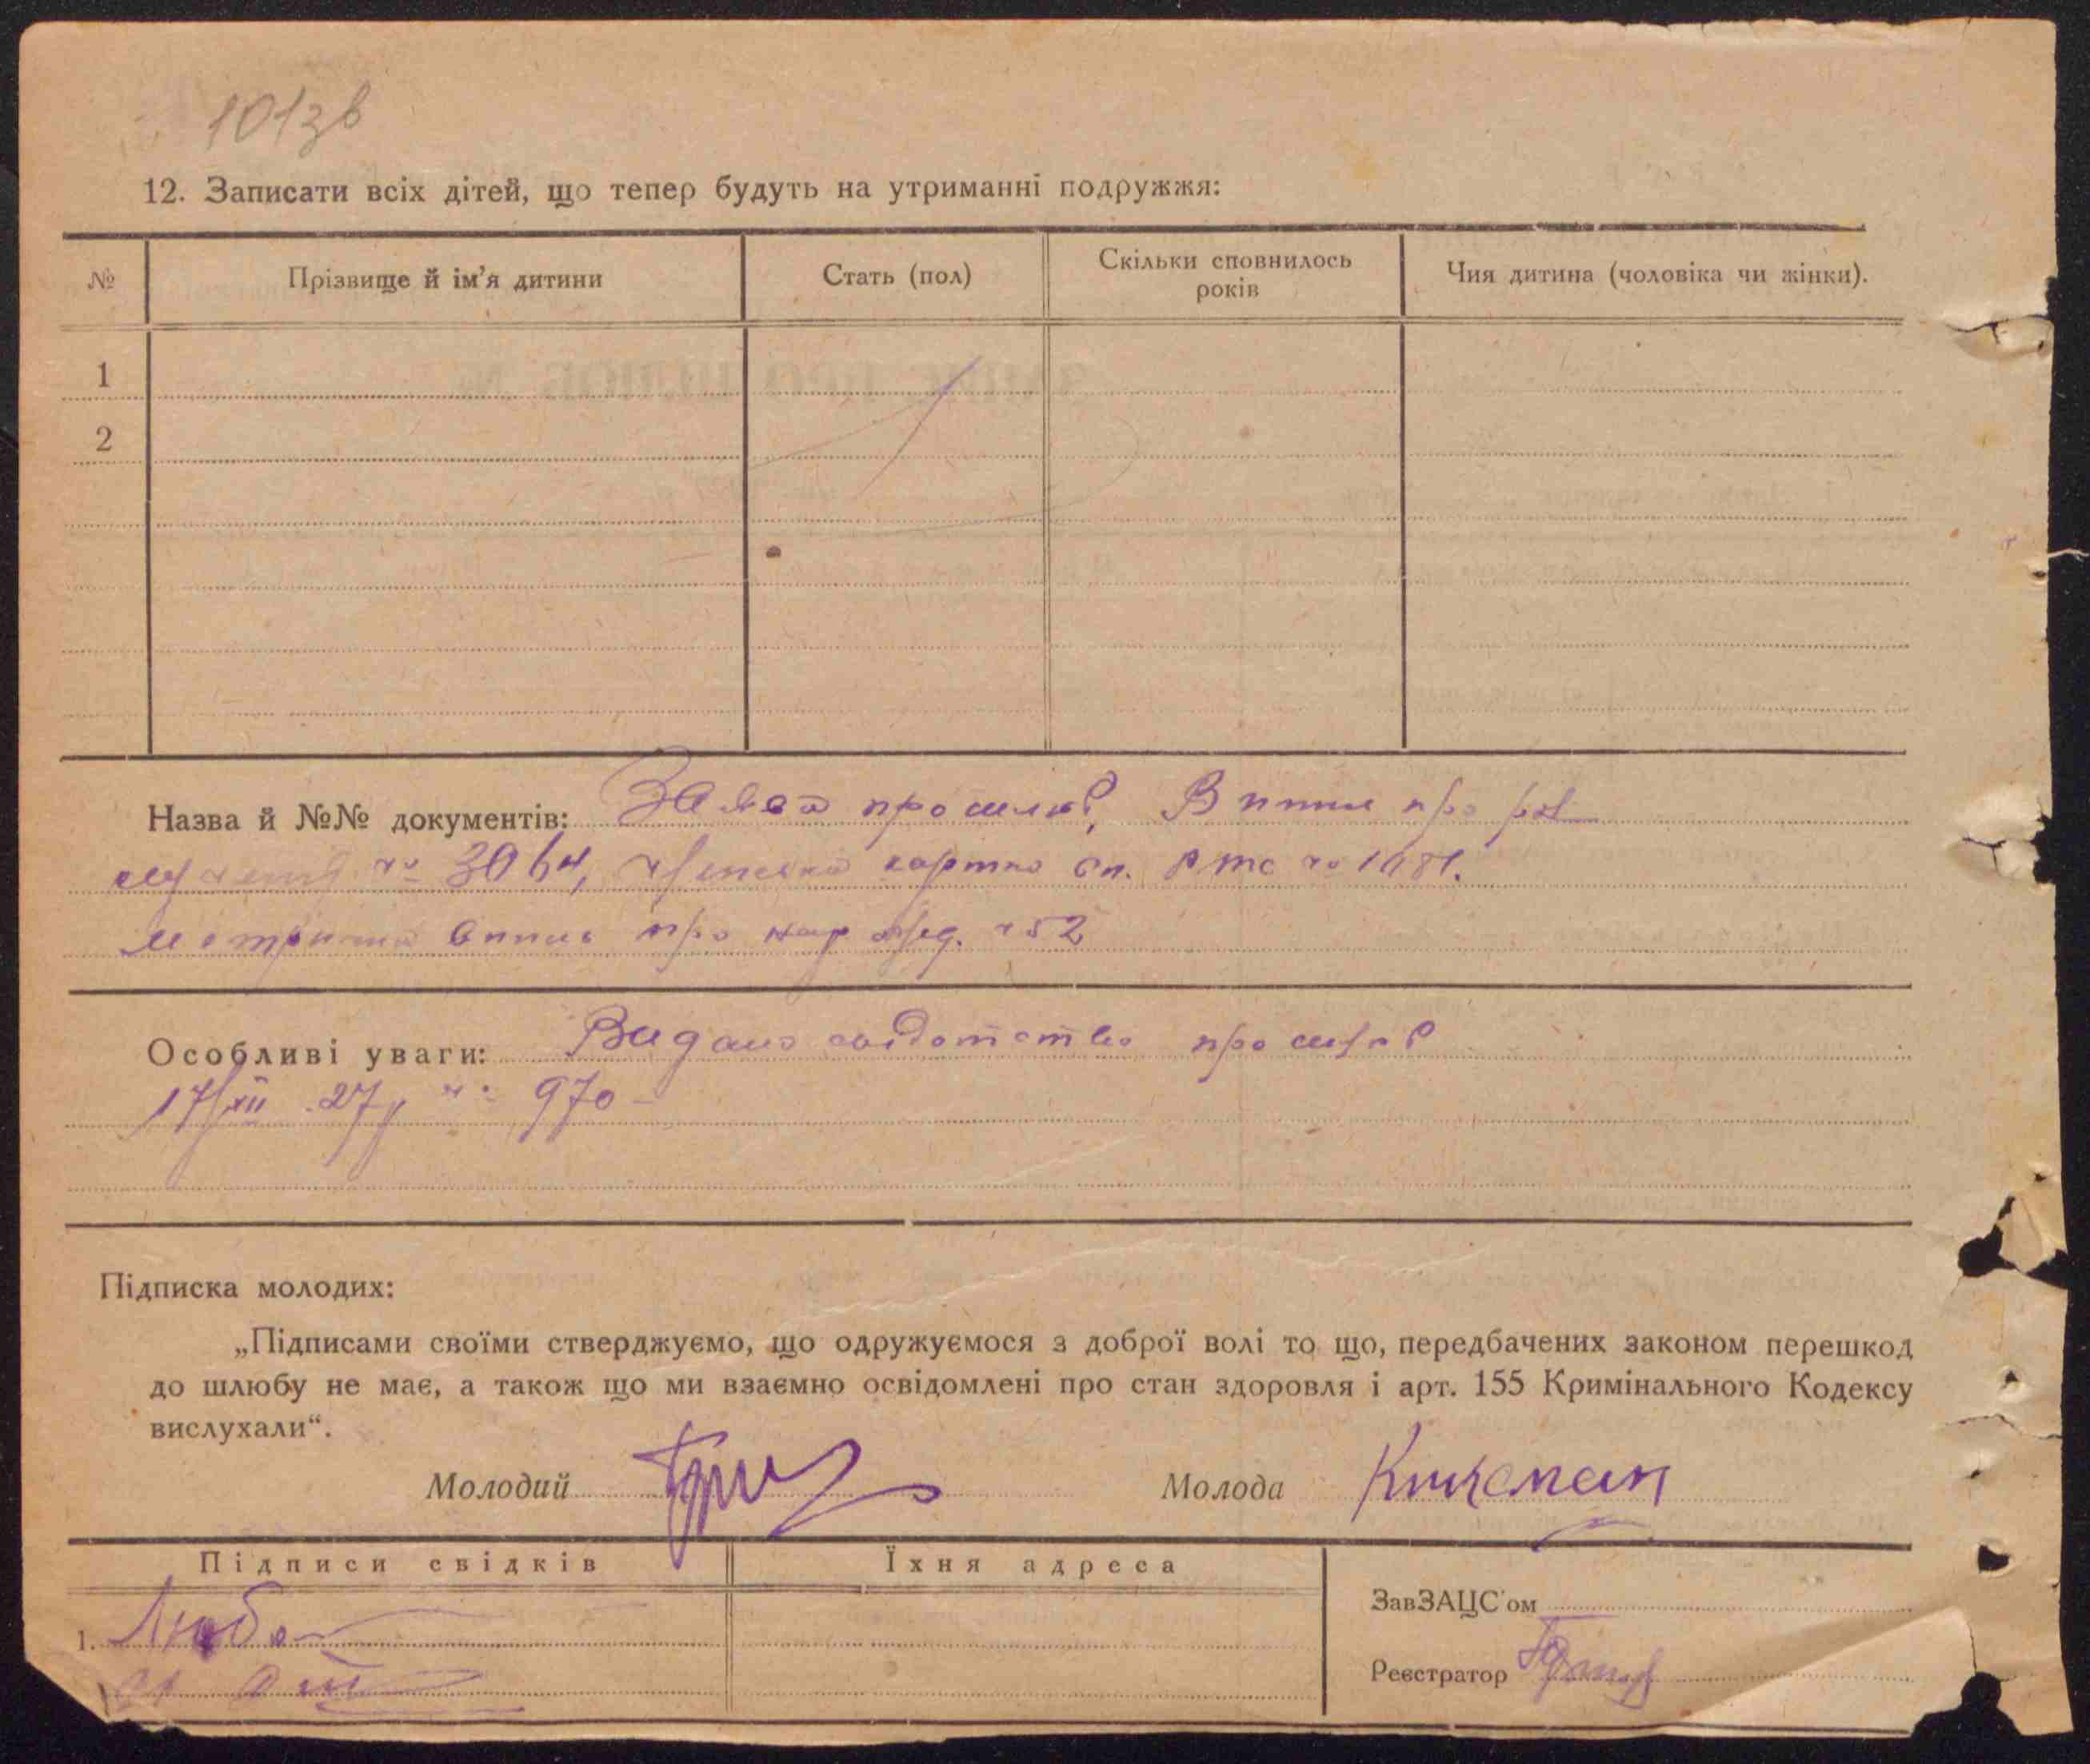 101зв
12. Записати всіх дітей, що тепер будуть на утриманні подружжя:
№ Прізвище й ім'я дитини Стать (пол) Скільки сповнилось років Чия дитина (чоловіка чи жінки).
1
2
Назва й №№ документів: Заява про шлюб, Випис про роз
№ 3064, картка вп. РТС № 1481.
Метрична випис про народж. № 52
Особливі уваги: Видано свідотство про шлюб
17/XII .27 р № 970
Підписка молодих:
„Підписами своїми стверджуємо, що одружуємося з доброї волі то що, передбачених законом перешкод
до шлюбу не має, а також що ми взаємно освідомлені про стан здоровля і арт. 155 Кримінального Кодексу
вислухали“.
Молодий Молода
Підписи свідків Їхня адреса
ЗавЗАЦС'ом
1.
Реєстратор